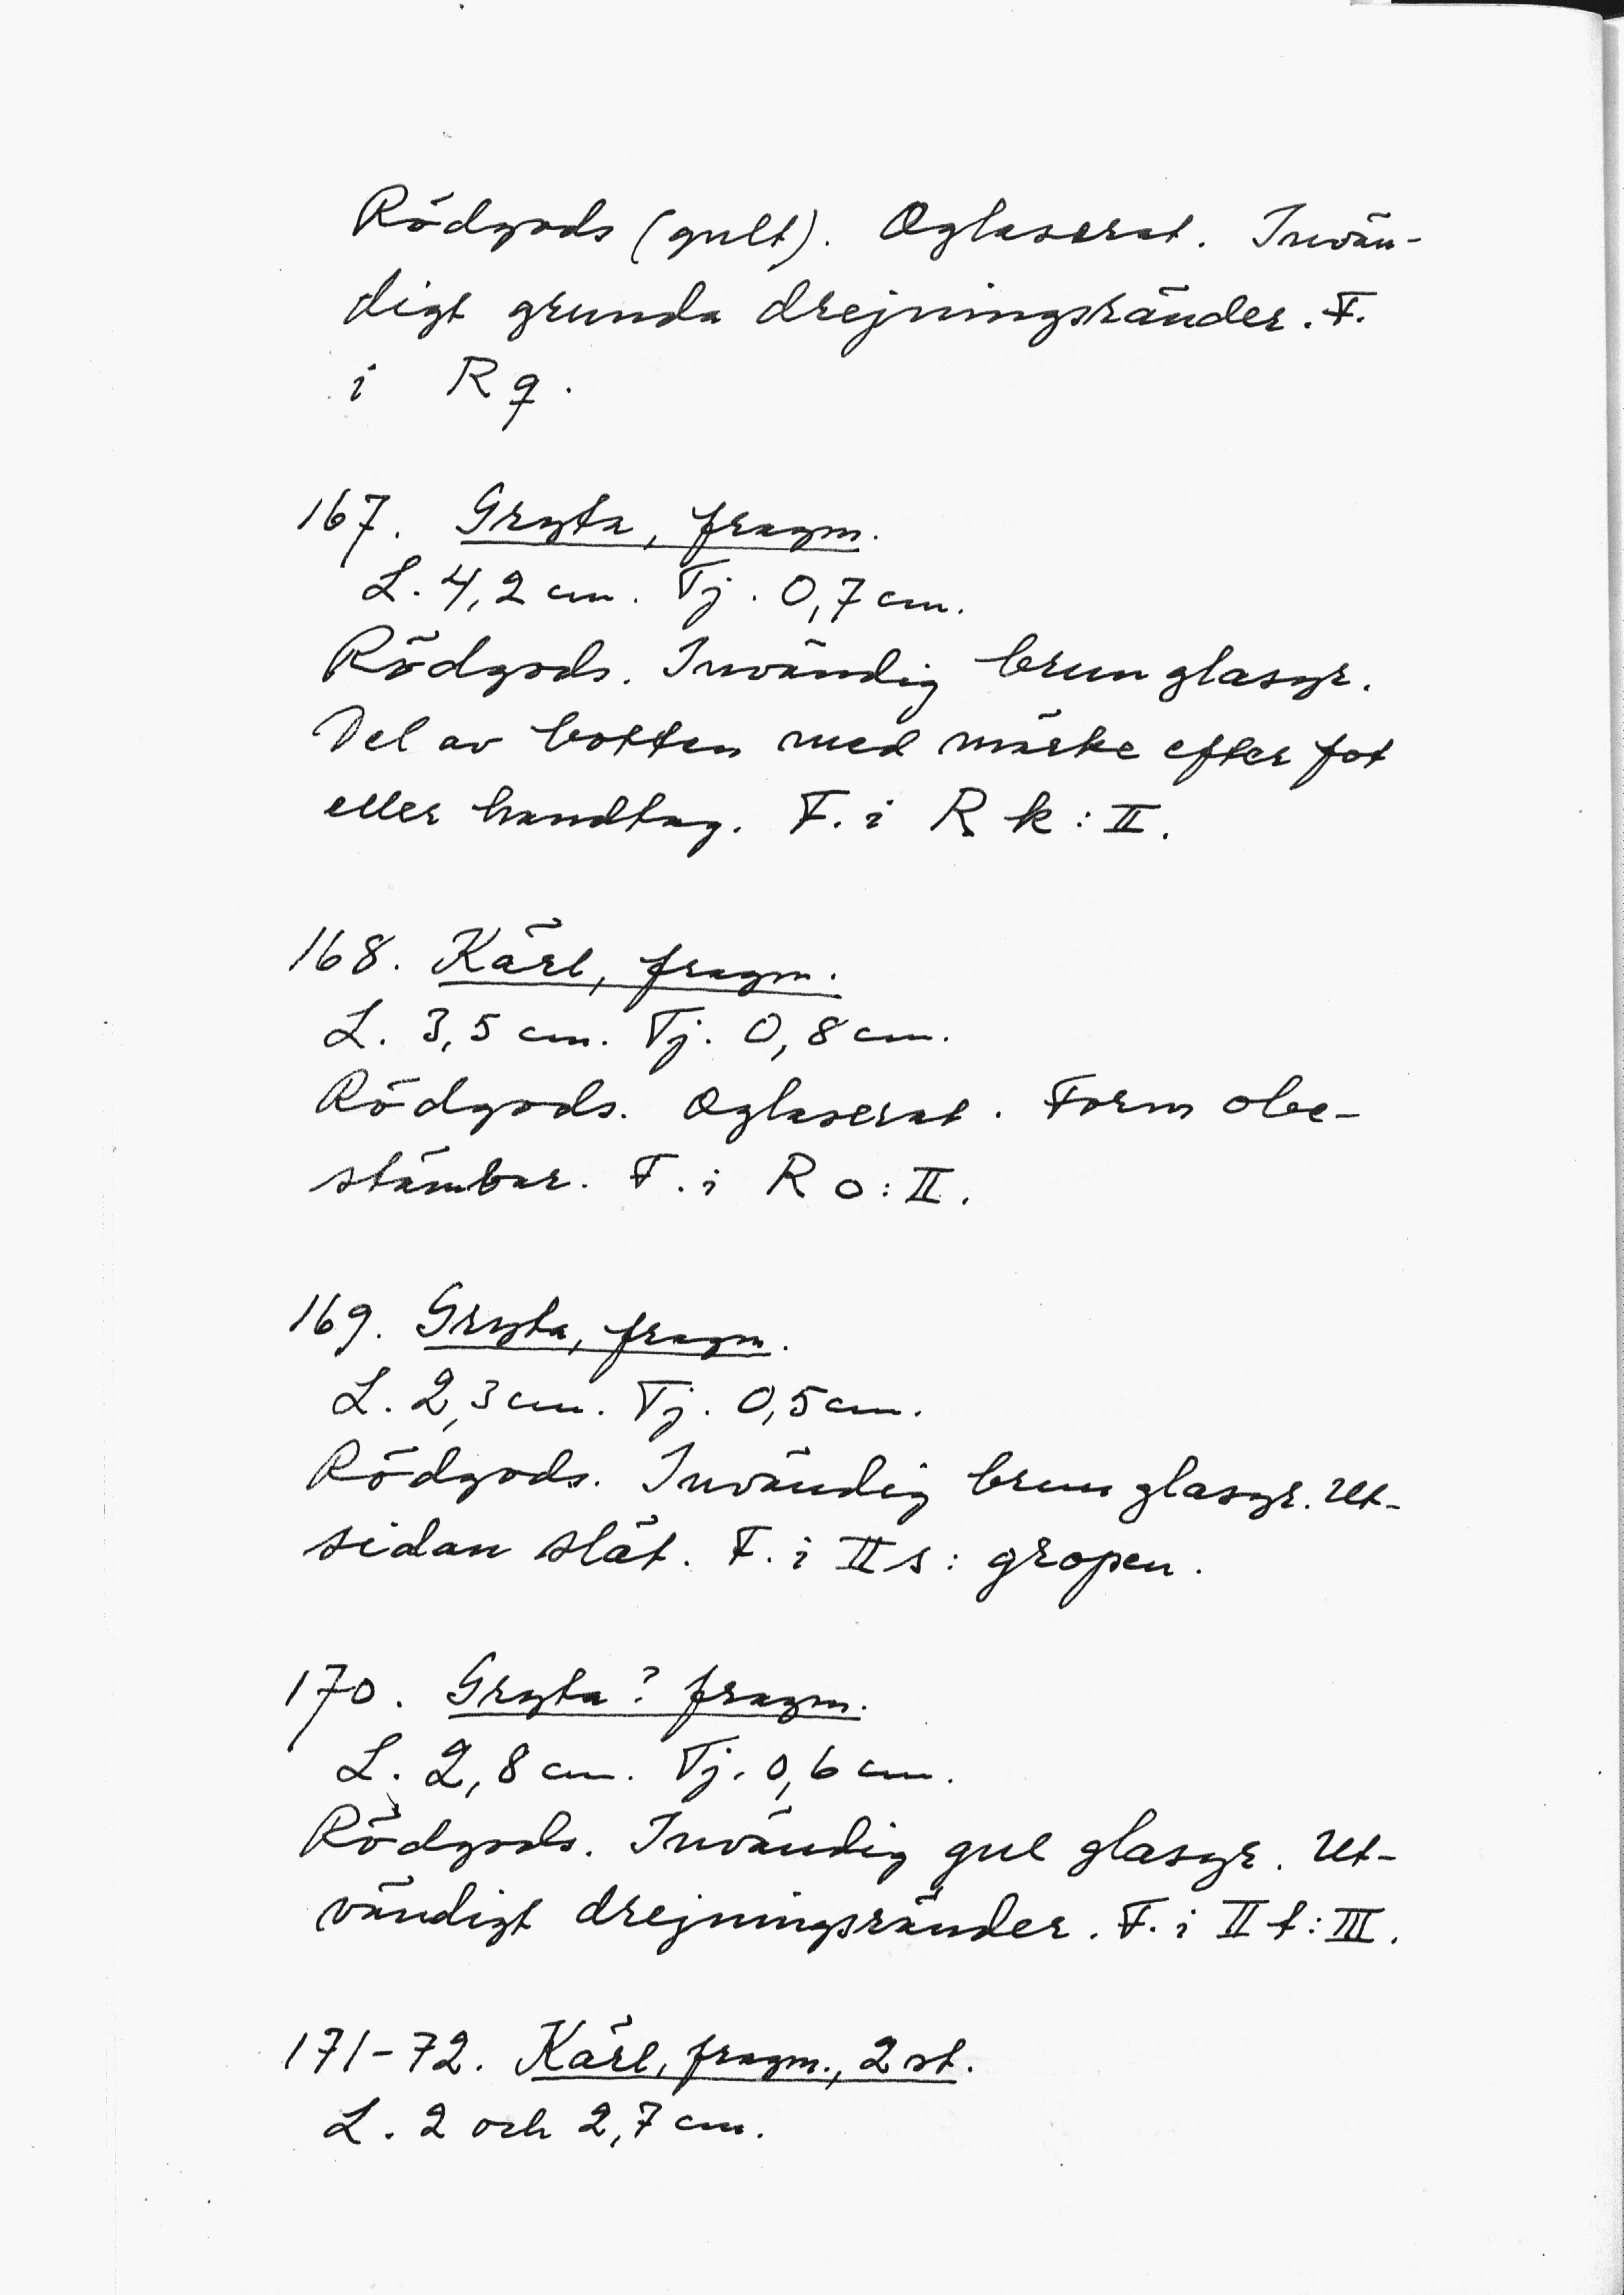 Rödgods (gult). Oglaserat. Invän-
digt grunda drejningsränder. F.
i R q.
167. Gryta, fragm.
L. 4,2 cm. Tj. 0,7 cm.
Rödgods. Invändig brun glasyr.
Del av botten med märke efter fot
eller handtag. F. i R k: II.
168. Kärl, fragm.
L. 3,5 cm. Tj. 0,8 cm.
Rödgods. Oglaserat. Form obe-
stämbar. F. i R o: II.
169. Gryta, fragm.
L. 2,3 cm. Tj. 0,5 cm.
Rödgods. Invändig brun glasyr. Ut-
sidan slät. F. i II s: gropen.
170. Gryta? fragm.
L. 2,8 cm. Tj. 0,6 cm.
Rödgods. Invändig gul glasyr. Ut-
vändigt drejningsränder. F. i II t: III.
171-72. Kärl, fragm., 2 st.
L. 2 och 2,7 cm.